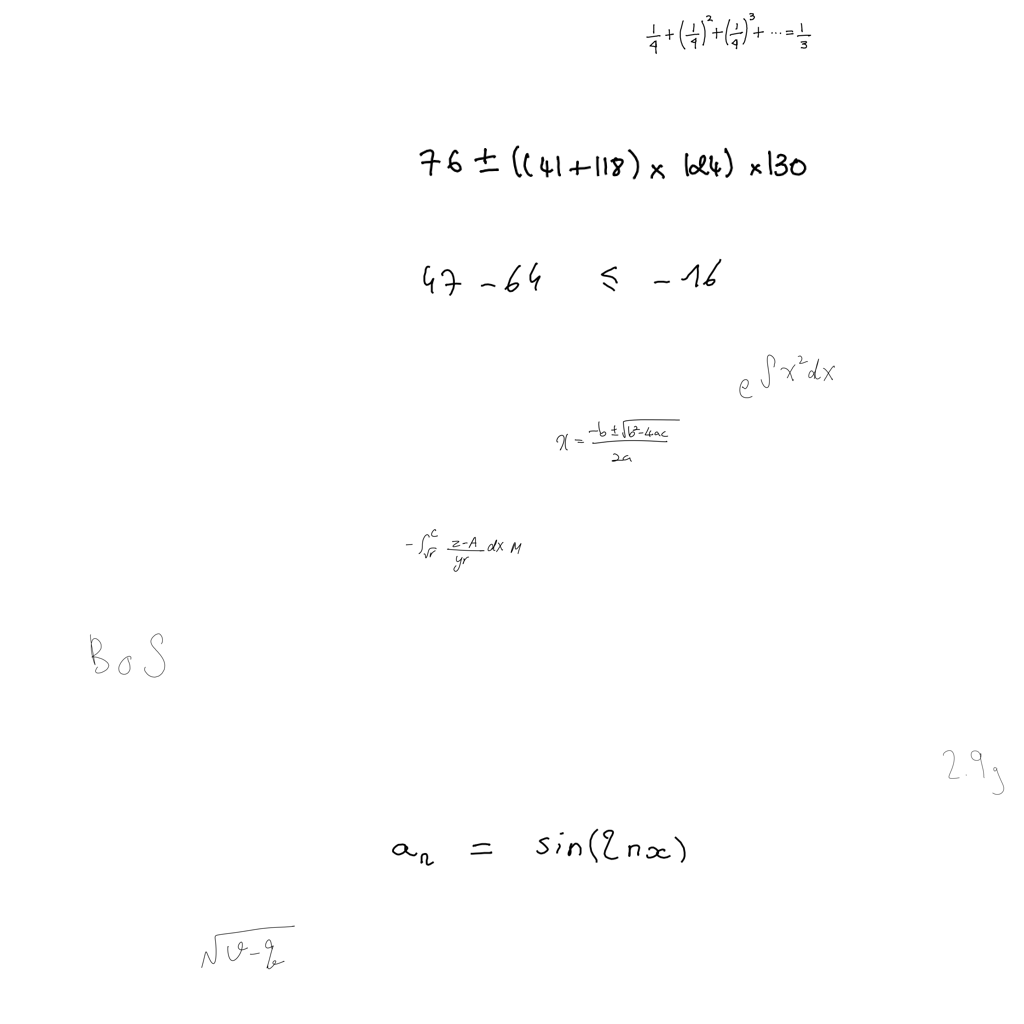 \frac{1}{4}+(\frac{1}{4})^2+(\frac{1}{4})^3+\cdots=\frac{1}{3}
76 ± ((41+118) × 124) × 130
47 - 64 ≤ -16
e^{\int x^2 dx}
x = \frac{-b±\sqrt{b^2-4ac}}{2a}
-\int_{\sqrt{r}}^{c} \frac{z-A}{yr} dx M
B o S
2.9g
a_n = sin(2nx)
\sqrt{v-q}